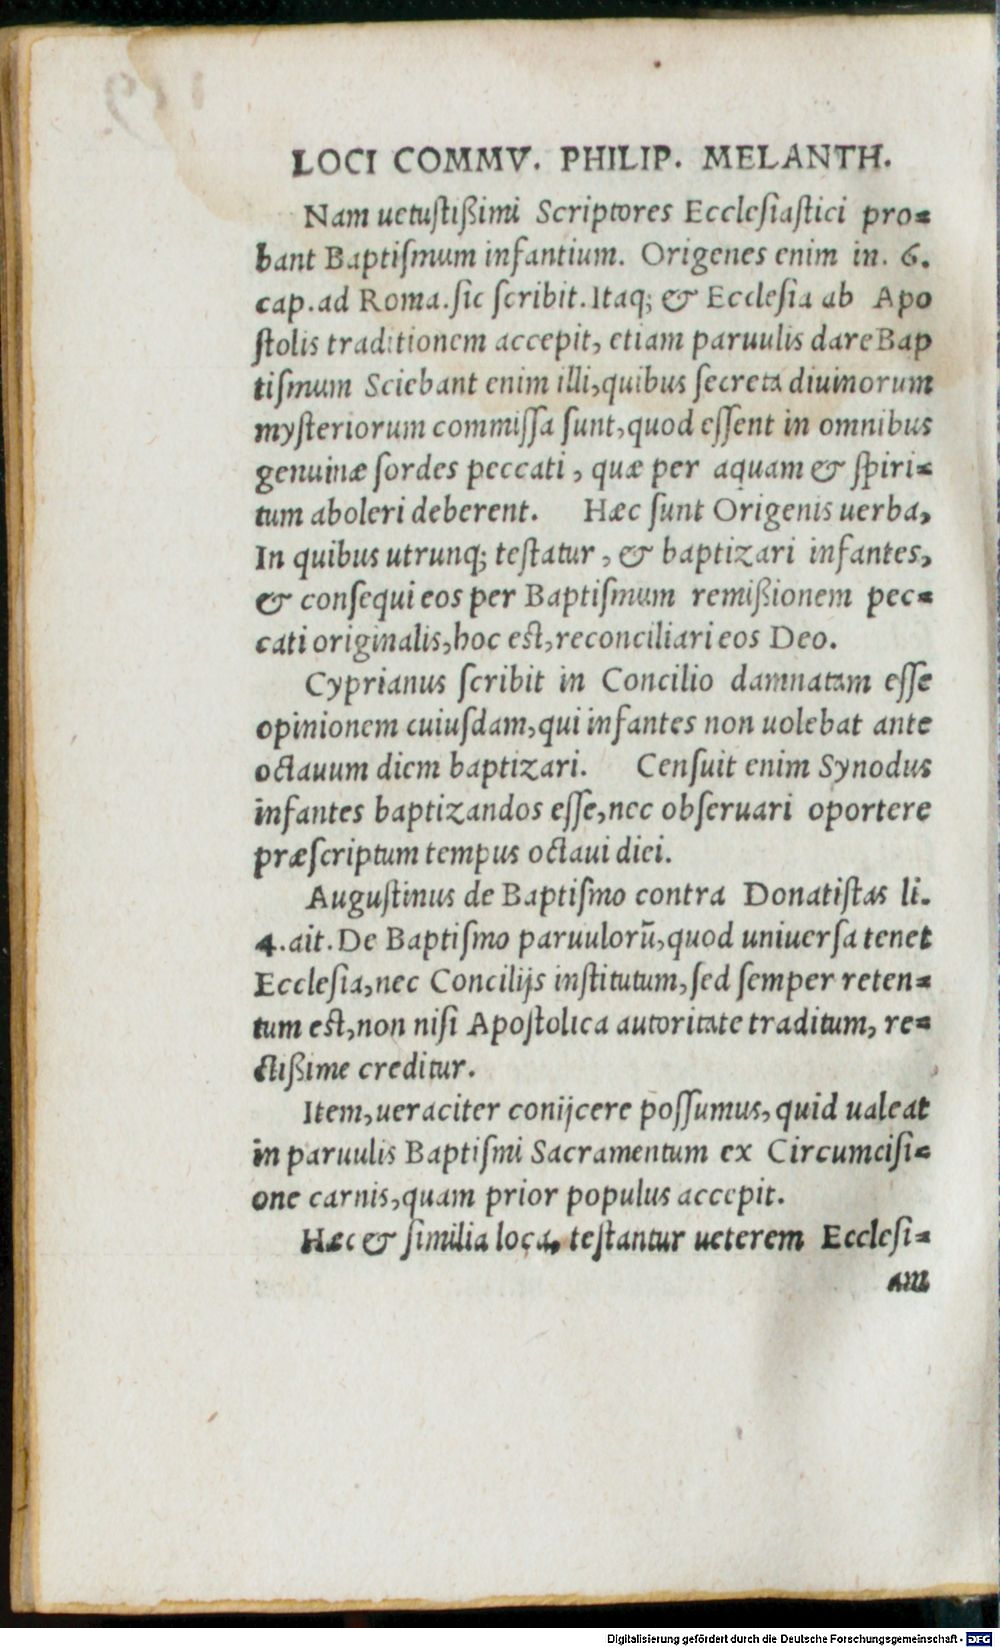 LOCI COMMV. PHILIP. MELANTH.
Nam uetustißimi Scriptores Ecclesiastici pro=
bant Baptismum infantium. Origenes enim in. 6.
cap. ad Roma. sic scribit. Itaq; & Ecclesia ab Apo
stolis traditionem accepit, etiam paruulis dare Bap
tismum Sciebant enim illi, quibus secreta diuinorum
mysteriorum commissa sunt, quod essent in omnibus
genuinæ sordes peccati, quæ per aquam & spiri=
tum aboleri deberent. Hæc sunt Origenis uerba,
In quibus utrunq; testatur, & baptizari infantes,
& consequi eos per Baptismum remißionem pec=
cati originalis, hoc est, reconciliari eos Deo.
Cyprianus scribit in Concilio damnatam esse
opinionem cuiusdam, qui infantes non uolebat ante
octauum diem baptizari. Censuit enim Synodus
infantes baptizandos esse, nec obseruari oportere
præscriptum tempus octaui diei.
Augustinus de Baptismo contra Donatistas li.
4. ait. De Baptismo paruulorū, quod uniuersa tenet
Ecclesia, nec Concilijs institutum, sed semper reten=
tum est, non nisi Apostolica autoritate traditum, re=
ctißime creditur.
Item, ueraciter conijcere possumus, quid ualeat
in paruulis Baptismi Sacramentum ex Circumcisi=
one carnis, quam prior populus accepit.
Hæc & similia loca, testantur ueterem Ecclesi=
am
Digitalisierung gefördert durch die Deutsche Forschungsgemeinschaft - DFG